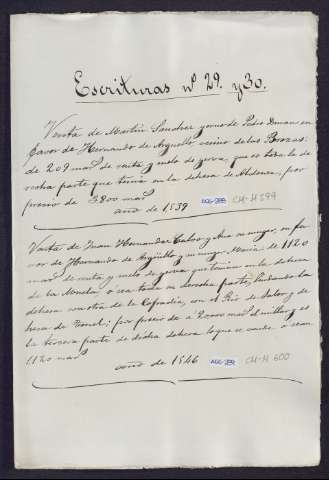 Escrituras nº 29. y 30.
Venta de Martin Sanchez yerno de Pedro Duran en
favor de Hernando de Arguello vecino de las Brozas:
de 209 mar.s de renta y suelo de yerva, que es toda la de
recha parte que tenia en la dehesa de por
precio de 3800 mar.s
año de 1539 AGG-288 CM-H 599
Venta de Juan Hernandez Calvo y Ana su muger, en fa
vor de Hernando de Argüello y su muger, María de 1120
mar.s de renta y suelo de yerva que tenian en la dehesa
de la o sea toda su derecha parte, lindando la
dehesa con otra de la Cofradia, con el Rio de Salor y de
hesa de por precio de a 20000 mar.s el millar y es
la tercera parte de dicha dehesa lo que se vende ó sean
1120 mar.s
año de 1546 AGG-289 CM-H 600